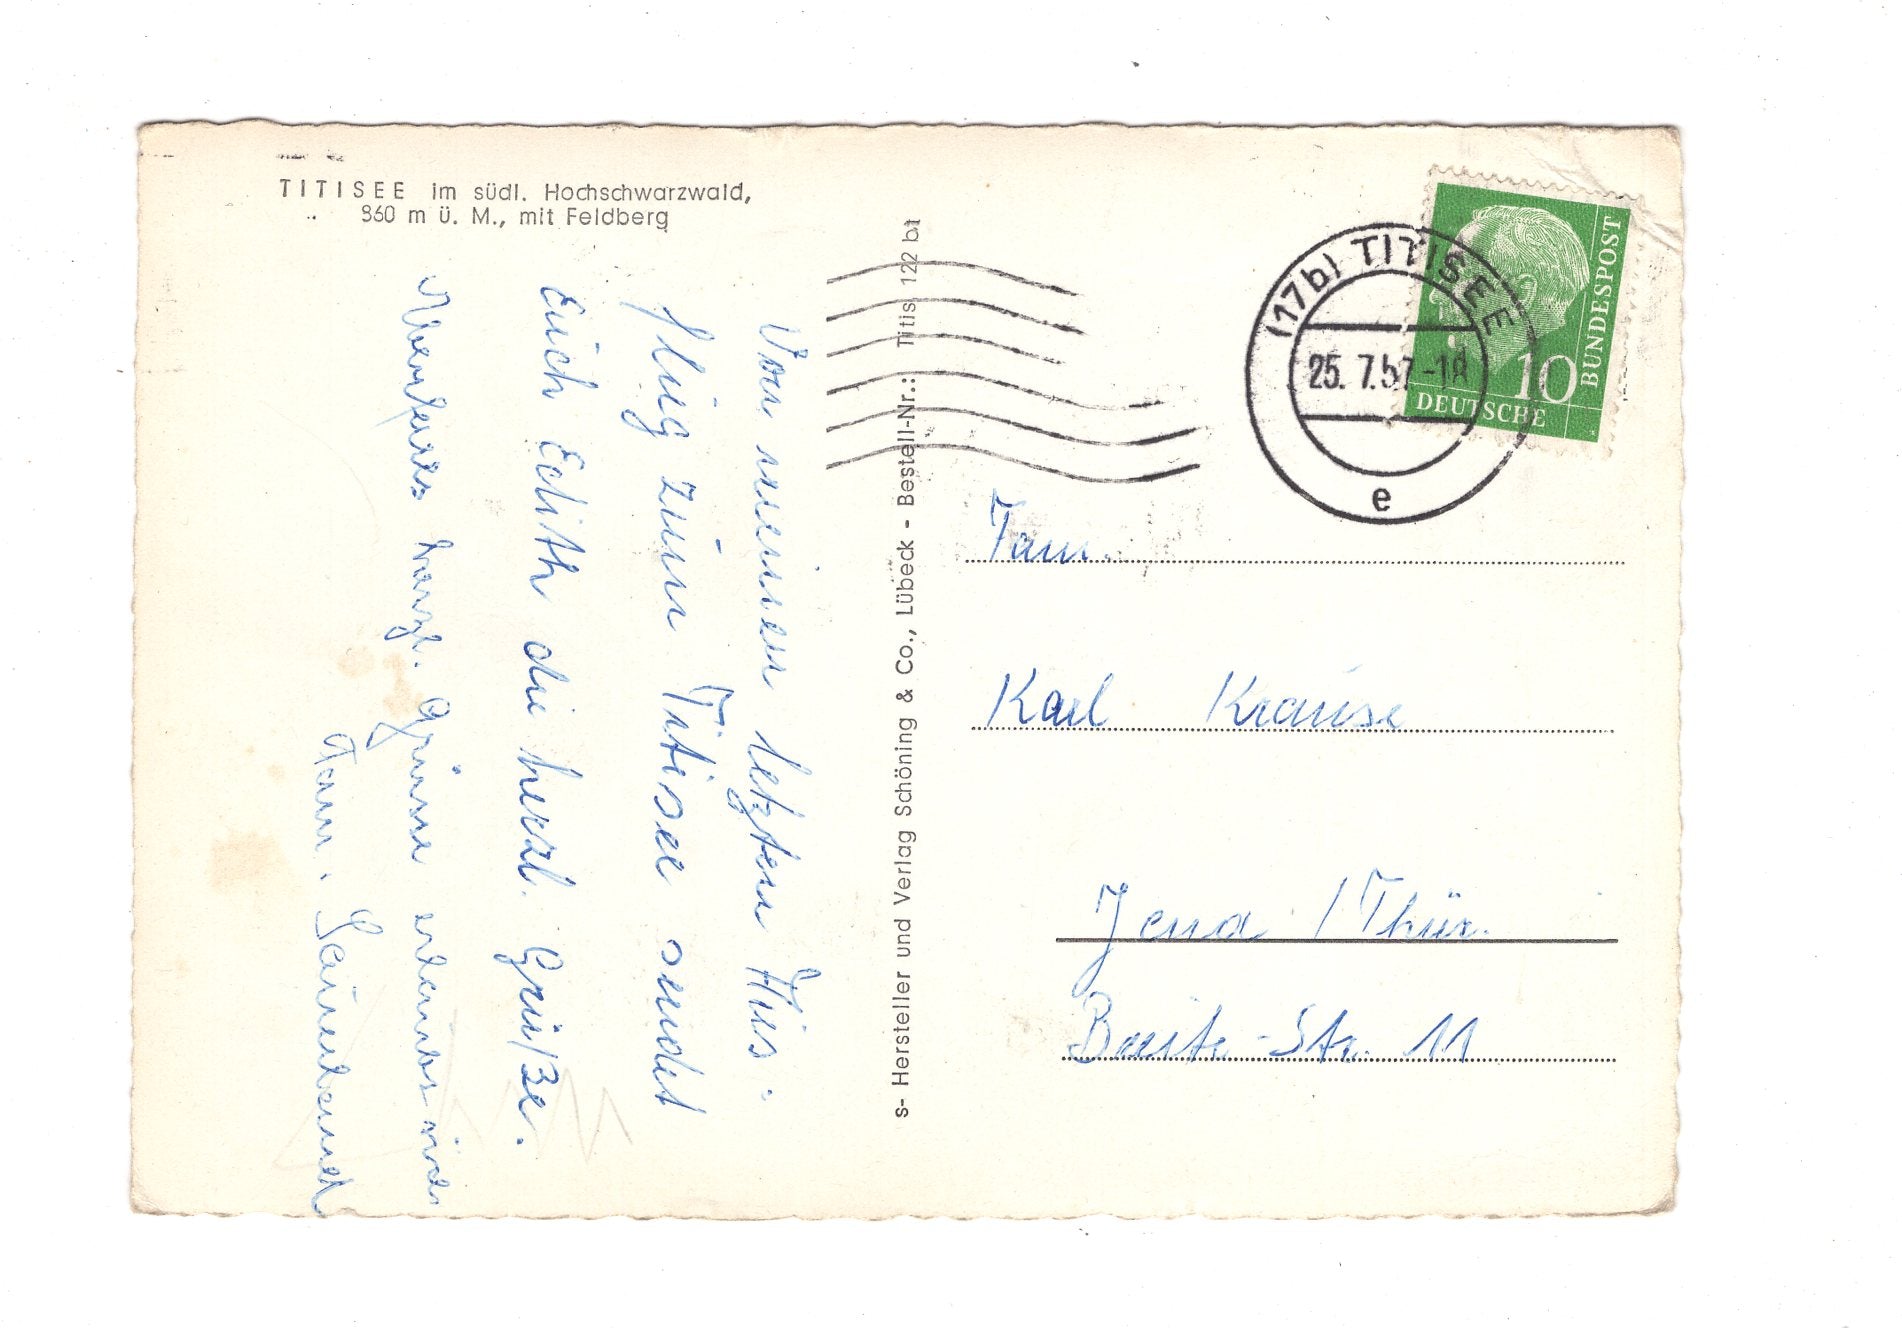 TITISEE im südl. Hochschwarzwald,
860 m ü. M., mit Feldberg
Von meinem letzten Aus-
flug zum Titisee sendet
Euch Edith die herzl. Grüße.
herzl. Grüsse erlaubt sich
Fam.
s- Hersteller und Verlag Schöning & Co., Lübeck - Bestell-Nr.: Titis 122 bt
(17b) TITISEE
25. 7.57-18
e
DEUTSCHE
BUNDESPOST
10
Fam.
Karl Krause
Jena / Thür.
Breite-Str. 11